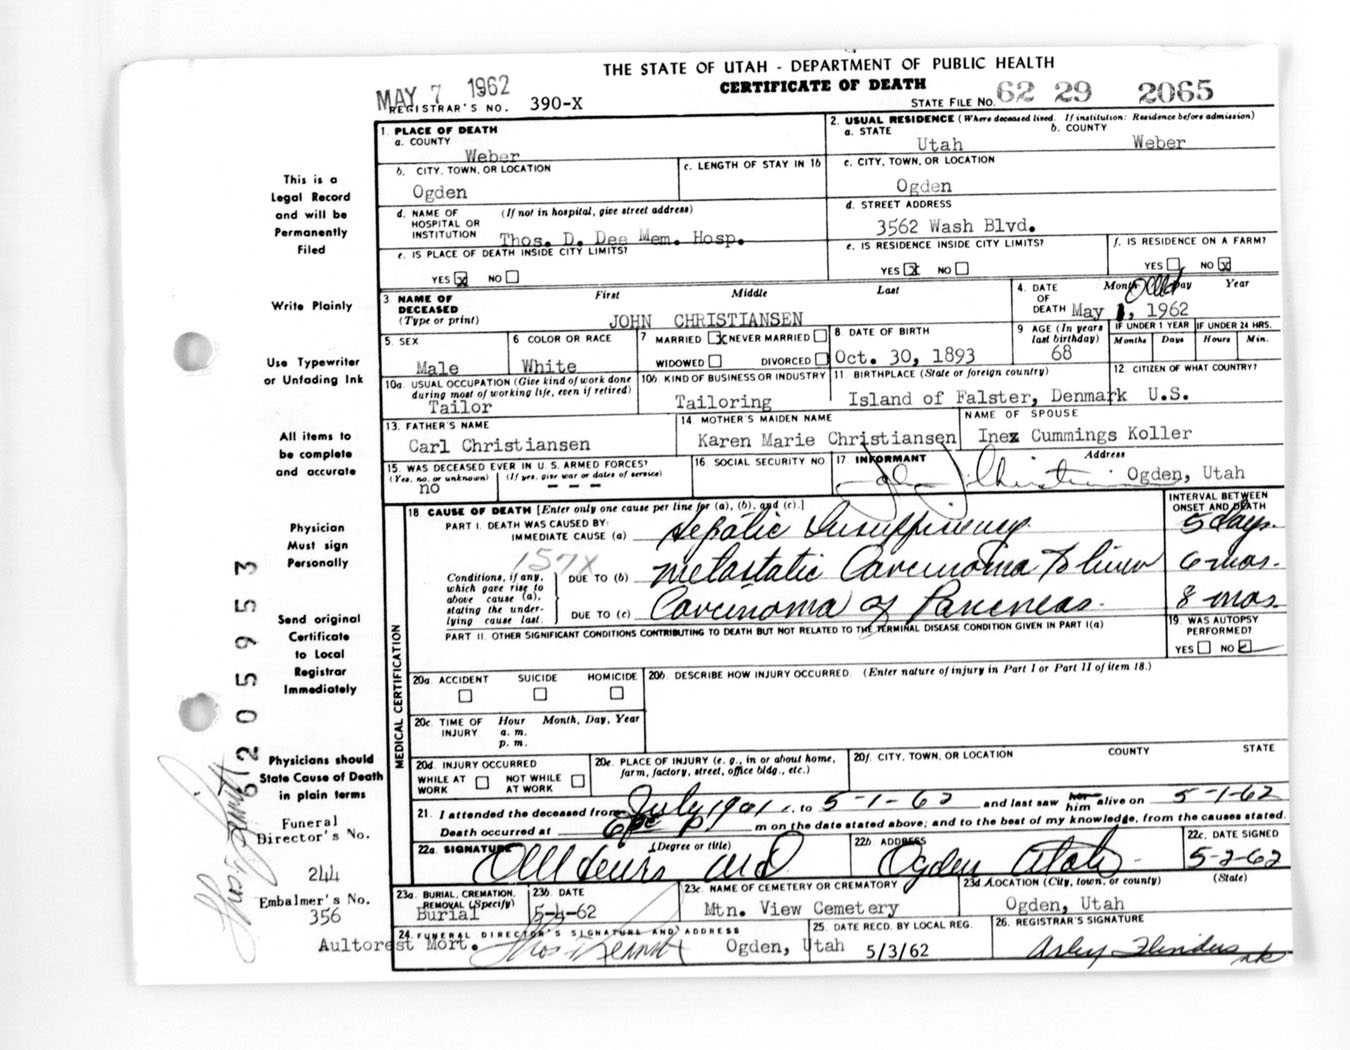 THE STATE OF UTAH - DEPARTMENT OF PUBLIC HEALTH
CERTIFICATE OF DEATH
MAY 7 1962
REGISTRAR'S NO. 390-X
STATE FILE NO. 62 29 2065
1. PLACE OF DEATH
a. COUNTY
Weber
2. USUAL RESIDENCE (Where deceased lived. If institution: Residence before admission)
a. STATE b. COUNTY
Utah Weber
b. CITY, TOWN, OR LOCATION
Ogden
c. LENGTH OF STAY IN 1b
c. CITY, TOWN, OR LOCATION
Ogden
d. NAME OF HOSPITAL OR INSTITUTION (If not in hospital, give street address)
Thos. D. Dee Mem. Hosp.
d. STREET ADDRESS
3562 Wash Blvd.
e. IS PLACE OF DEATH INSIDE CITY LIMITS?
YES x NO
e. IS RESIDENCE INSIDE CITY LIMITS?
YES x NO
f. IS RESIDENCE ON A FARM?
YES NO x
3 NAME OF DECEASED (Type or print)
First Middle Last
JOHN CHRISTIANSEN
4. DATE OF DEATH Month Day Year
May 1, 1962
5. SEX
Male
6 COLOR OR RACE
White
7 MARRIED x NEVER MARRIED
WIDOWED DIVORCED
8 DATE OF BIRTH
Oct. 30, 1893
9 AGE (In years last birthday)
68
IF UNDER 1 YEAR IF UNDER 24 HRS.
Months Days Hours Min.
10a. USUAL OCCUPATION (Give kind of work done during most of working life, even if retired)
Tailor
10b. KIND OF BUSINESS OR INDUSTRY
Tailoring
11 BIRTHPLACE (State or foreign country)
Island of Falster, Denmark
12 CITIZEN OF WHAT COUNTRY?
U.S.
13. FATHER'S NAME
Carl Christiansen
14 MOTHER'S MAIDEN NAME
Karen Marie Christiansen
NAME OF SPOUSE
Inez Cummings Koller
15. WAS DECEASED EVER IN U.S. ARMED FORCES?
(Yes, no, or unknown) (If yes, give war or dates of service)
no - - -
16. SOCIAL SECURITY NO.
17 INFORMANT Address
Ogden, Utah
18 CAUSE OF DEATH [Enter only one cause per line for (a), (b), and (c).]
INTERVAL BETWEEN ONSET AND DEATH
PART I. DEATH WAS CAUSED BY:
IMMEDIATE CAUSE (a) Hepatic Insufficiency 5 days.
157X
Conditions, if any, which gave rise to above cause (a), stating the underlying cause last.
DUE TO (b) Metastatic Carcinoma to liver 6 mos.
DUE TO (c) Carcinoma of Pancreas. 8 mos.
PART II. OTHER SIGNIFICANT CONDITIONS CONTRIBUTING TO DEATH BUT NOT RELATED TO THE TERMINAL DISEASE CONDITION GIVEN IN PART I(a)
19. WAS AUTOPSY PERFORMED?
YES NO
MEDICAL CERTIFICATION
20a. ACCIDENT SUICIDE HOMICIDE
20b. DESCRIBE HOW INJURY OCCURRED. (Enter nature of injury in Part I or Part II of item 18.)
20c TIME OF INJURY Hour Month, Day, Year
a. m.
p. m.
20d. INJURY OCCURRED
WHILE AT WORK NOT WHILE AT WORK
20e. PLACE OF INJURY (e. g., in or about home, farm, factory, street, office bldg., etc.)
20f. CITY, TOWN, OR LOCATION COUNTY STATE
21. I attended the deceased from July 1961, to 5-1-62 and last saw him alive on 5-1-62
Death occurred at m on the date stated above; and to the best of my knowledge, from the causes stated.
22a. SIGNATURE (Degree or title)
22b ADDRESS
Ogden Utah
22c. DATE SIGNED
5-2-62
23a. BURIAL, CREMATION, REMOVAL (Specify)
Burial
23b. DATE
5-4-62
23c. NAME OF CEMETERY OR CREMATORY
Mtn. View Cemetery
23d. LOCATION (City, town, or county) (State)
Ogden, Utah
24. FUNERAL DIRECTOR'S SIGNATURE AND ADDRESS
Aultorest Mort. Ogden, Utah
25. DATE RECD. BY LOCAL REG.
5/3/62
26. REGISTRAR'S SIGNATURE
This is a
Legal Record
and will be
Permanently
Filed
Write Plainly
Use Typewriter
or Unfading Ink
All items to
be complete
and accurate
Physician
Must sign
Personally
Send original
Certificate
to Local
Registrar
Immediately
Physicians should
State Cause of Death
in plain terms
Funeral
Director's No.
244
Embalmer's No.
356
6205953